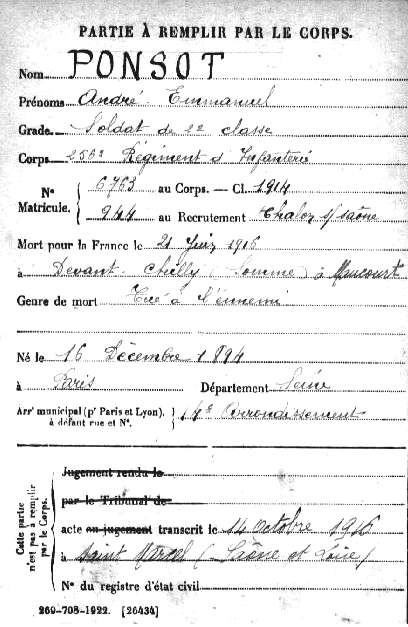 PARTIE À REMPLIR PAR LE CORPS.
Nom PONSOT
Prénoms André Emmanuel
Grade Soldat de 2e classe
Corps Régiment d'Infanterie
N° Matricule. { 6763 au Corps. — Cl. 1914
244 au Recrutement Chalon s/Saône
Mort pour la France le 21 1916
à Devant Chilly (Somme) à Maucourt
Genre de mort Tué à l'ennemi
Né le 16 Décembre 1894
à Paris Département Seine
Arr' municipal (p' Paris et Lyon), à défaut rue et N°. } 14e Arrondissement
Cette partie n'est pas à remplir par le Corps.
Jugement rendu le
par le Tribunal de
acte ou jugement transcrit le 14 Octobre 1916
à Saint Marcel (Saône et Loire)
N° du registre d'état civil
269-708-1922. [26434]